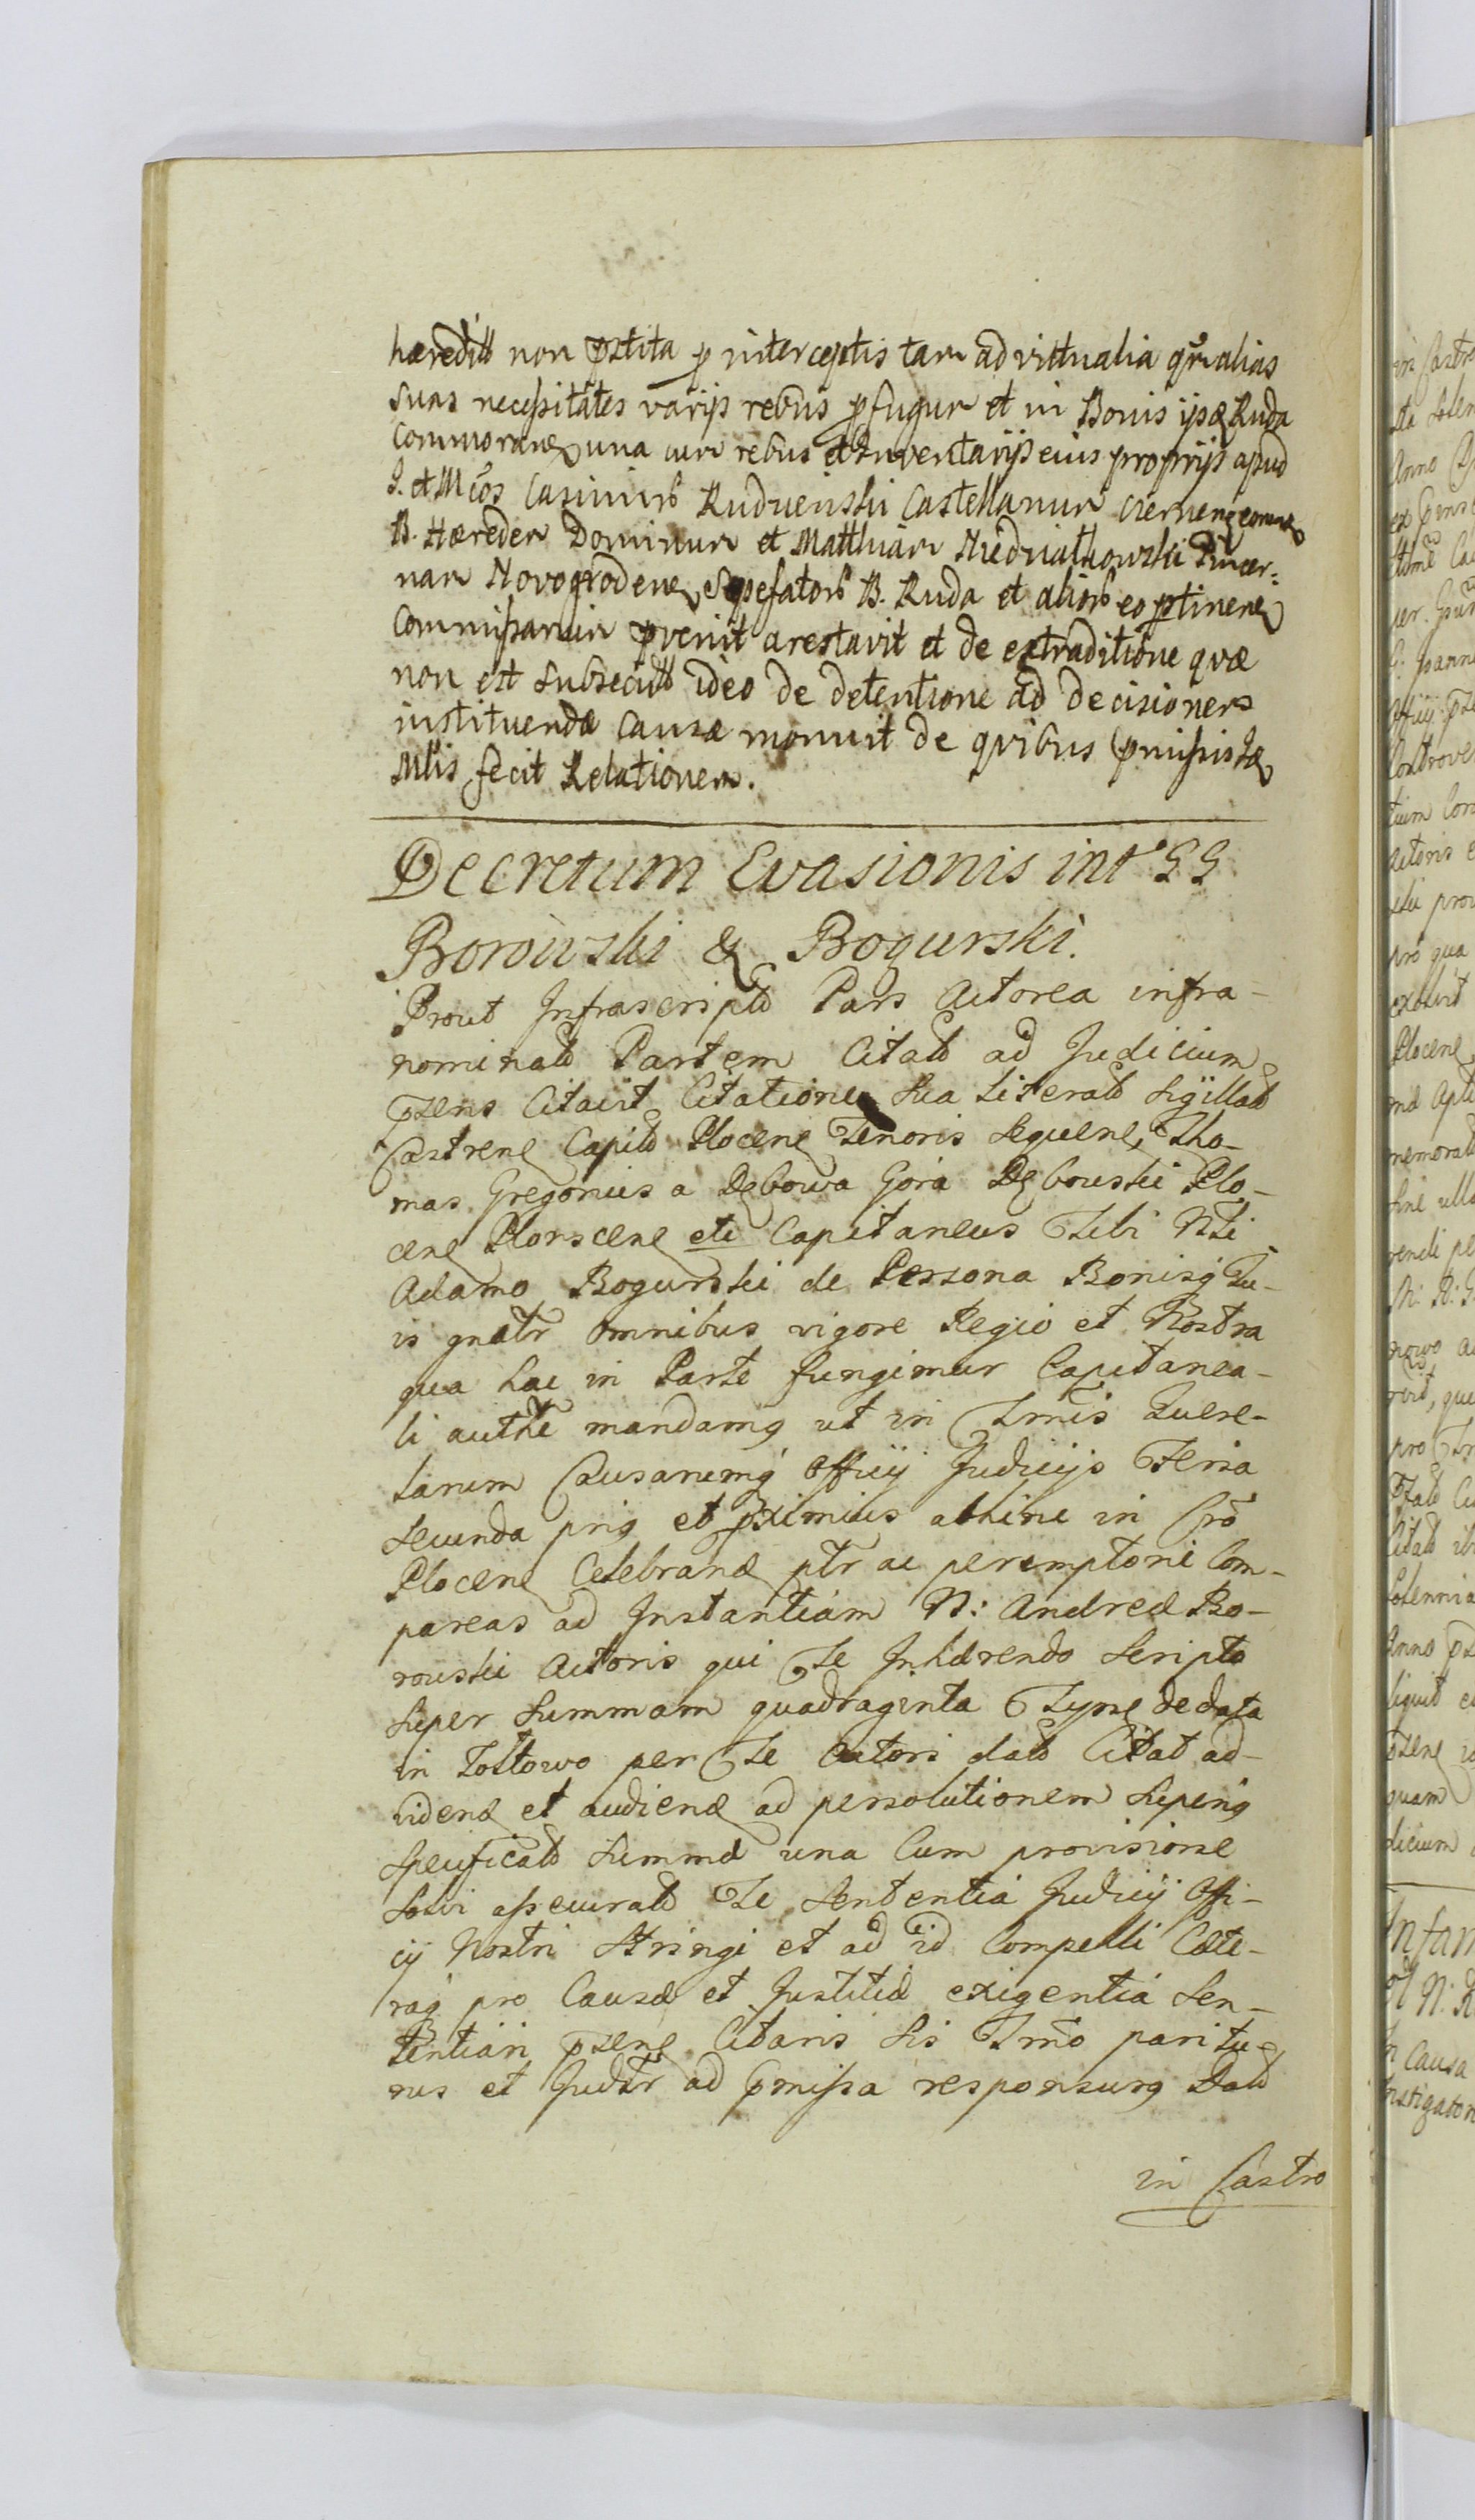 hæredit non pstita p interceptis tam ad victualia qm alias
suas necessitates varijs rebus pfugum et in Bonis ijsq Ruda
commoran una cum rebus et Inventarijs eius proprijs apud
G. et Mcos Casimir Rudzienski Castellanum Czernen eorum
B. Hæredem Dominum et Matthiam Niedwiatkowski Pincer:
nam Novogroden sepefator B. Ruda et alior eo ptinen
Commissarium pvenit arestavit et de extraditione quæ
non est subsecut ideo de detentione ad decisionem
instituendæ causæ monuit de quibus pmissis
Mlis fecit Relationem.
Decretum Evasionis intr GG
Borowski & Bogurski.
Prout Infrascripta Pars Actorea infra-
nominat Partem Citat ad Judicium
psens Citavit Citatione sua Literat Sigillat
Castren Capit Plocen Tenoris Sequen, Tho-
mas Gregorius a Dębowa Gora Dębowski Plo-
cen Plonscen etc Capitaneus Tibi Nli
Adamo Bogurski de Persona Bonisq Tu-
is gnatr omnibus vigore Regio et Nostra
qua hac in Parte fungimur Capitanea-
li authe mandamq ut in Tmis Quere-
larum Causarumq Officij Judicijs Feria
secunda pria et pximius abhinc in Cro
Plocen Celebran ptr ac peremptorie Com-
pareas ad Instantiam N: Andreæ Bo-
rowski Actoris qui Te Inhærendo Scripto
super Summam quadraginta Tynf de data
in Zottowo per Te Actori dat Citat ad-
viden et audien ad persolutionem superiq
specificat Summæ una Cum provisione
Solvi assecurat Te Sententia Judicij Offi-
cij Nostri Stringi et ad id Compelli Cæte-
raq pro Causæ et Justitiæ exigentia Sen-
tentiari psen Citaris sis Tmo paritu-
rus et Judtr ad pmissa responsurq Dat
in Castro